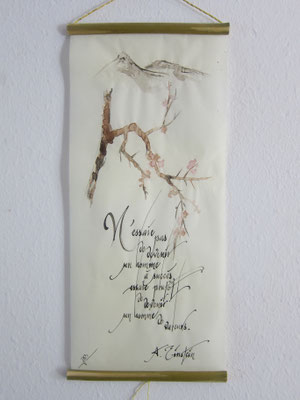 N'essaie pas
de devenir
un homme
à succès,
essaie plutôt
de devenir
un homme de
valeurs.
A. Einstein